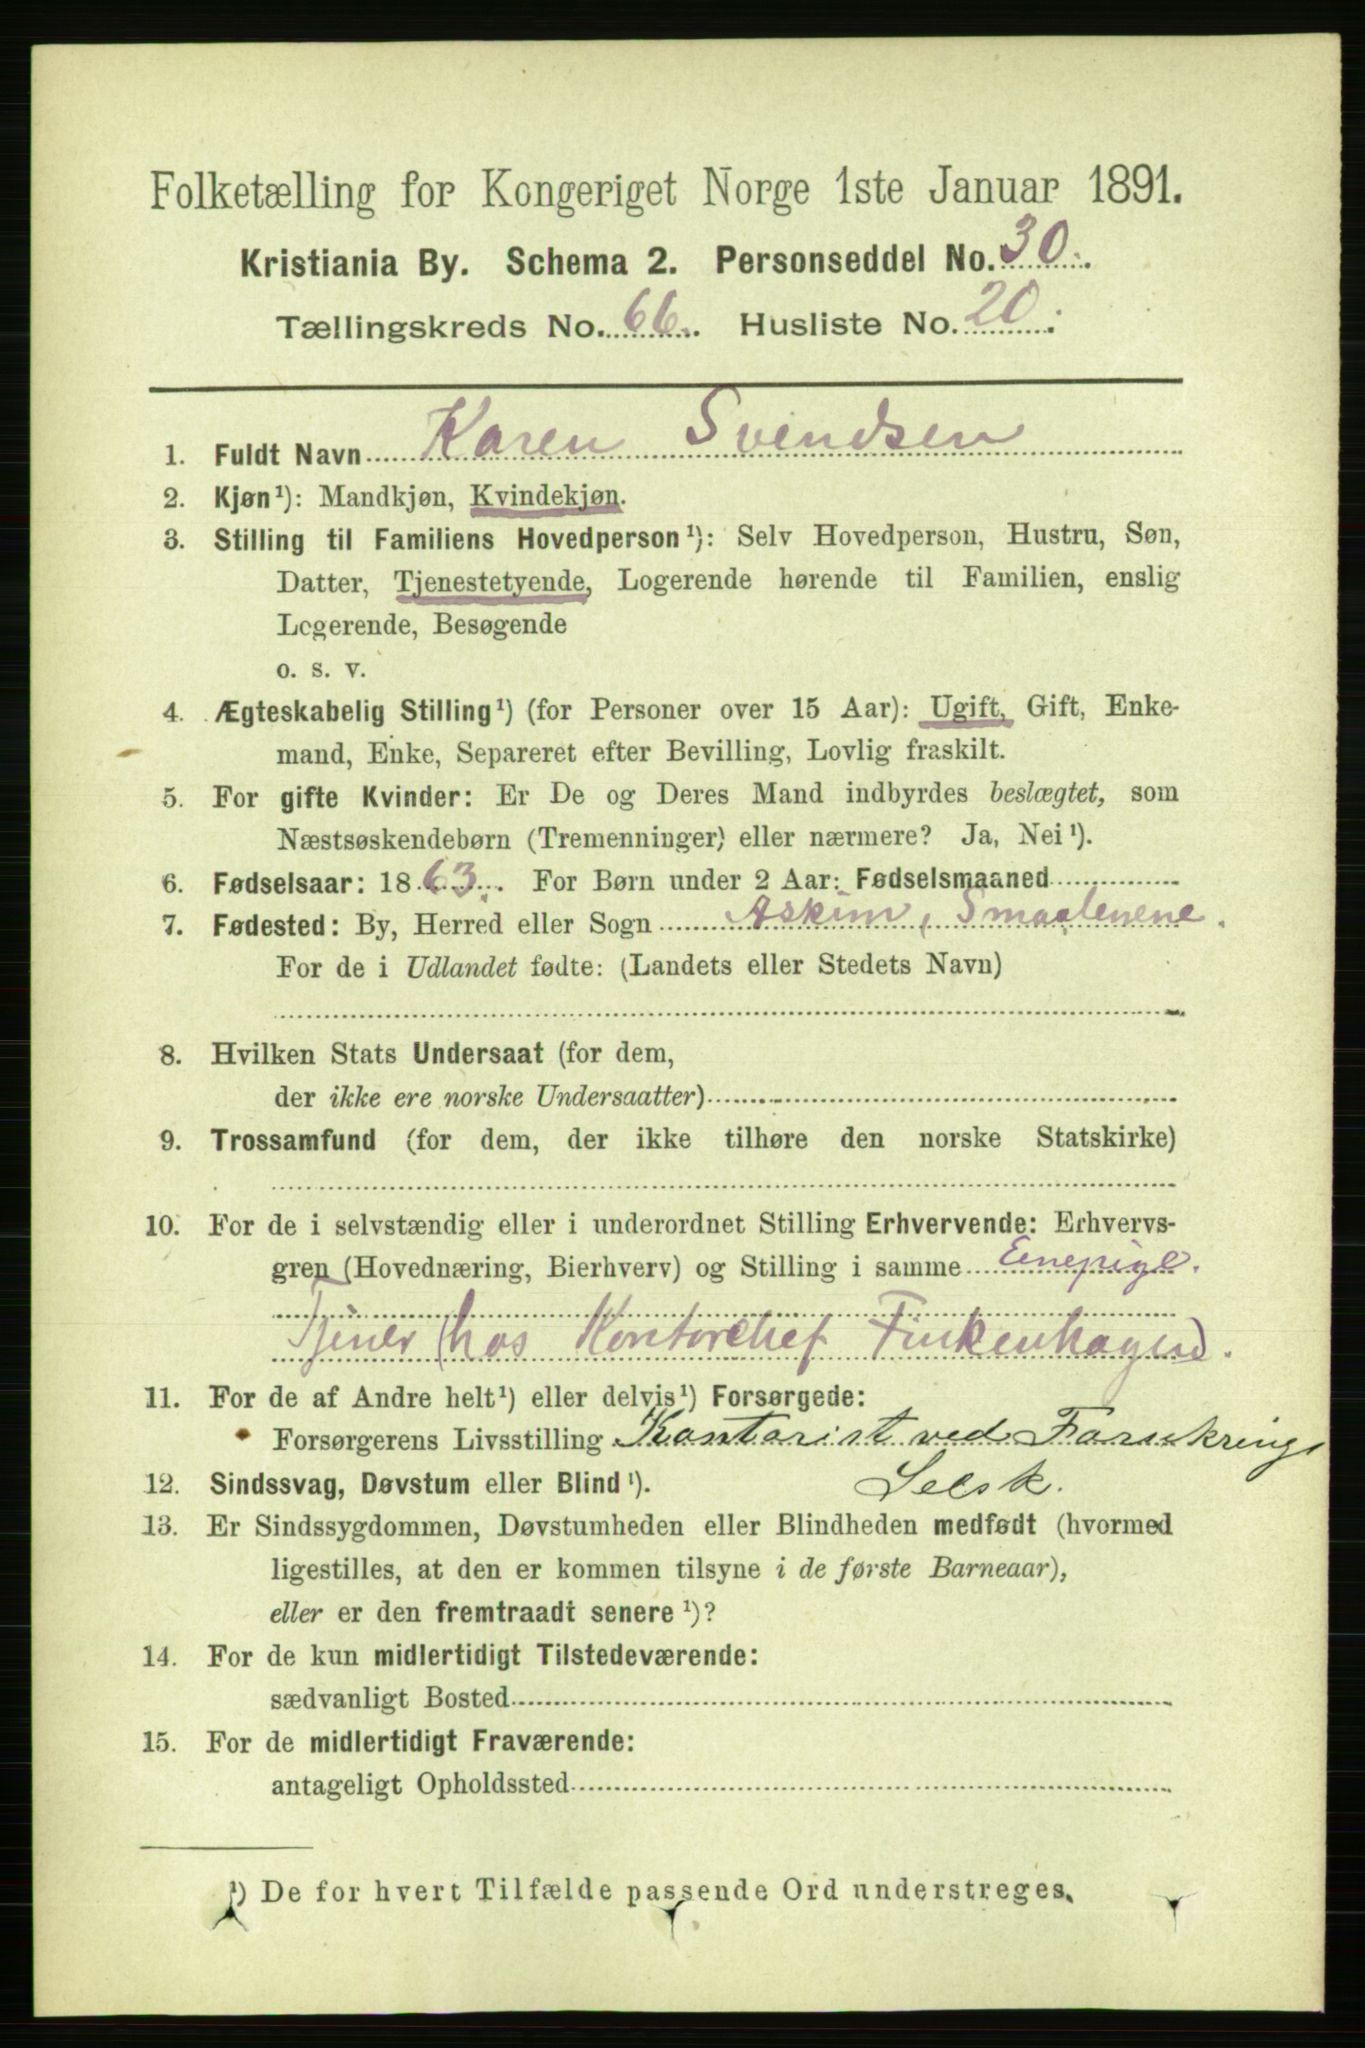 Folketælling for Kongeriget Norge 1ste Januar 1891.
Kristiania By. Schema 2. Personseddel No. 30.
Tællingskreds No. 66. Husliste No. 20.
1. Fuldt Navn Karen Svendsen
2. Kjøn¹): Mandkjøn, Kvindekjøn.
3. Stilling til Familiens Hovedperson¹): Selv Hovedperson, Hustru, Søn,
Datter, Tjenestetyende, Logerende hørende til Familien, enslig
Logerende, Besøgende
o. s. v.
4. Ægteskabelig Stilling¹) (for Personer over 15 Aar): Ugift, Gift, Enke-
mand, Enke, Separeret efter Bevilling, Lovlig fraskilt.
5. For gifte Kvinder: Er De og Deres Mand indbyrdes beslægtet, som
Næstsøskendebørn (Tremenninger) eller nærmere? Ja, Nei¹).
6. Fødselsaar: 1863. For Børn under 2 Aar: Fødselsmaaned
7. Fødested: By, Herred eller Sogn Askim, Smaalenene.
For de i Udlandet fødte: (Landets eller Stedets Navn)
8. Hvilken Stats Undersaat (for dem,
der ikke ere norske Undersaatter)
9. Trossamfund (for dem, der ikke tilhøre den norske Statskirke)
10. For de i selvstændig eller i underordnet Stilling Erhvervende: Erhvervs-
gren (Hovednæring, Bierhverv) og Stilling i samme Enepige.
Tjener (hos Kontorchef Finkenhagen).
11. For de af Andre helt¹) eller delvis¹) Forsørgede:
Forsørgerens Livsstilling Kontorist ved Forsikrings
Selsk.
12. Sindssvag, Døvstum eller Blind¹).
13. Er Sindssygdommen, Døvstumheden eller Blindheden medfødt (hvormed
ligestilles, at den er kommen tilsyne i de første Barneaar),
eller er den fremtraadt senere¹)?
14. For de kun midlertidigt Tilstedeværende:
sædvanligt Bosted
15. For de midlertidigt Fraværende:
antageligt Opholdssted
¹) De for hvert Tilfælde passende Ord understreges.